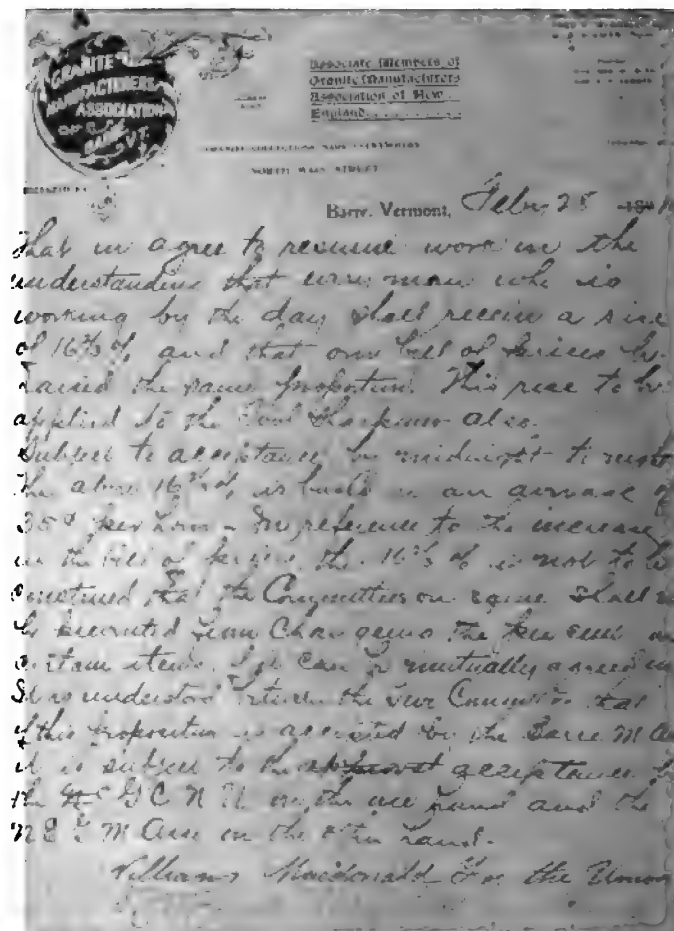 GRANITE
MANUFACTURERS
ASSOCIATION
OF
BARRE, VT.
Associate Members of
Granite Manufacturers
Association of New
England
NORTH MAIN STREET
Barre, Vermont, Feby 28
That we agree to resume work on the
understanding that every man who is
working by the day shall receive a rise
of 16⅔ % and that our bill of prices be
raised the same proportion. This rise to be
applied to the Tool Sharpeners also.
Subject to acceptance by midnight to night
The above 16⅔ % is based on an average of
35¢ per hour - In reference to the increase
in the bill of prices, the 16⅔ % is not to be
construed that the Committees on same shall
be the per cent on
certain items, can be mutually agreed
It is understood between the Committee that
if this proposition is accepted by the Barre M
it is subject to the acceptance
the G C N U on the one hand and the
N E G M Assn on the other hand.
William Macdonald For the Union